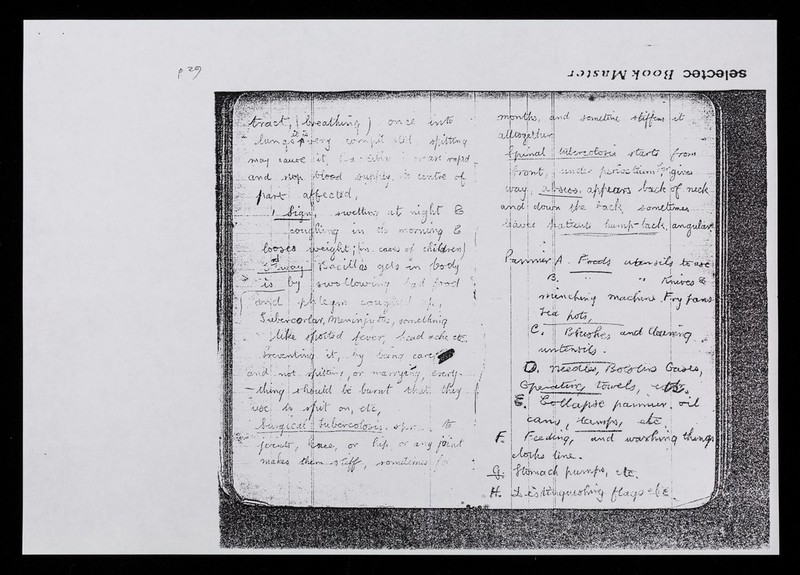 p 29
selectec Book Master
tract, (breathing) once into
lungs it is very
may cause it,
and stop blood supply, to centre of
part affected,
1 Sign, swelling at night &
coughing in the morning &
looses weight; (in cases of children)
2nd way Bacillas gets in body
is by swollowing bad food
and phlegm coughed up,
Tubercorlar, Meninjytis, something
like spotted fever, head ache etc.
Preventing it, by being carefull
and not spitting, or marrying, every-
-thing should be burnt that they
use to spit on, etc,
Surgical Tubercolosis.
joints, knee, or hip or any joint
makes them stiff, sometimes for
months, and sometime stiffens it
alltogether
Spinal tubercolosis starts from
front, under periosteum, gives
way, absess, appears back of neck
and down the back sometimes
leaves patients hump-back, angular
Pannier A. Foods utensils to use
B. " " Knives &
minching machine Fry pans
Tea pots,
C. Brushes and cleaning
untensils.
D. Needles, Bottles Cases,
Operating towels, etc.
E. Collapse pannier, oil
cans, lamps, etc
F. Feeding, and washing things
cloths line.
G. Stomach pumps, etc.
H. distinguishing flags etc.